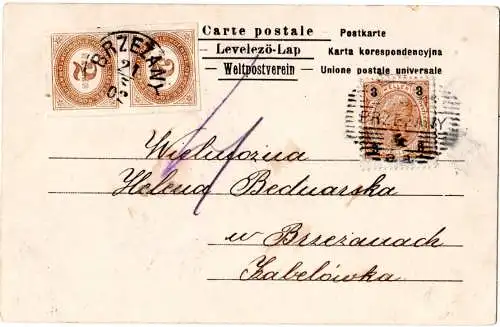 Carte postale – Postkarte
Levelező-Lap – Karta korespondencyjna
Weltpostverein – Unione postale universale
BRZEŻANY
21
2
2
3 3
BRZEŻANY
Wielmożna
Helena Bednarska
w Brzeżanach
Zabelówka